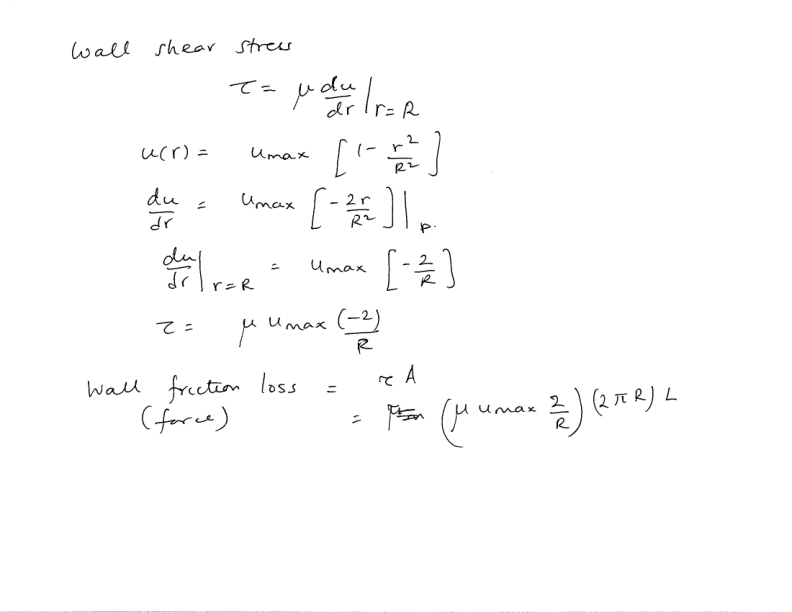 Wall shear stress
τ = μ du/dr |r=R
u(r) = umax [1 - r²/R²]
du/dr = umax [- 2r/R²] |R.
du/dr |r=R = umax [- 2/R]
τ = μ umax (-2)/R
Wall friction loss = τ A
(force) = (μ umax 2/R) (2πR) L